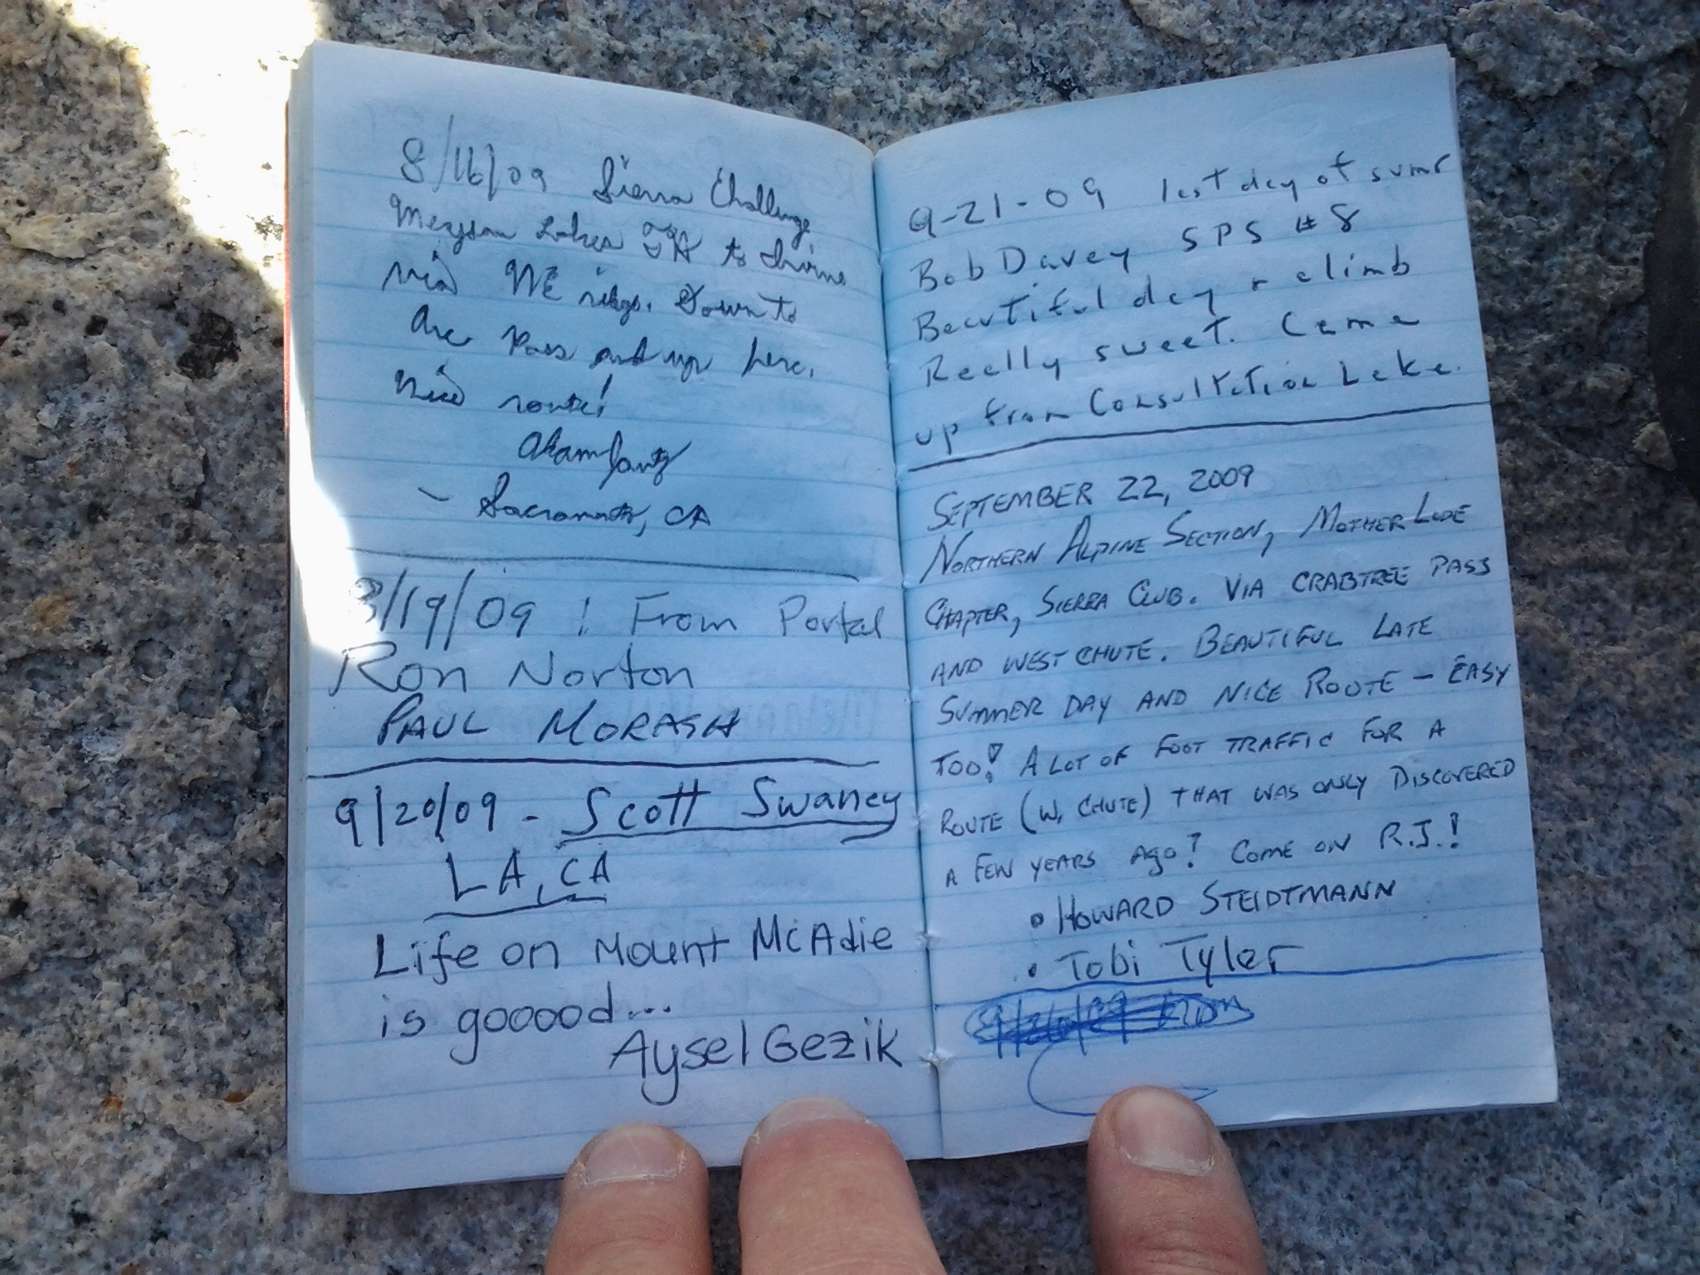 8/16/09 Sierra Challenge
Meysan Lakes TH to Irvine
via NE ridge. Down to
Arc Pass and up here.
Nice route!
Sacramento, CA
8/19/09 ! From Portal
Ron Norton
PAUL MORASH
9/20/09 - Scott Swaney
LA, CA
Life on Mount McAdie
is gooood...
Aysel Gezik
9-21-09 last day of sumr
Bob Davey SPS #8
Beautiful day + climb
Really sweet. Came
up from Consultation Lake.
SEPTEMBER 22, 2009
NORTHERN ALPINE SECTION, MOTHER LODE
CHAPTER, SIERRA CLUB. VIA CRABTREE PASS
AND WEST CHUTE. BEAUTIFUL LATE
SUMMER DAY AND NICE ROUTE - EASY
TOO! A LOT OF FOOT TRAFFIC FOR A
ROUTE (W. CHUTE) THAT WAS ONLY DISCOVERED
A FEW YEARS AGO? COME ON R.J.!
• HOWARD STEIDTMANN
• Tobi Tyler